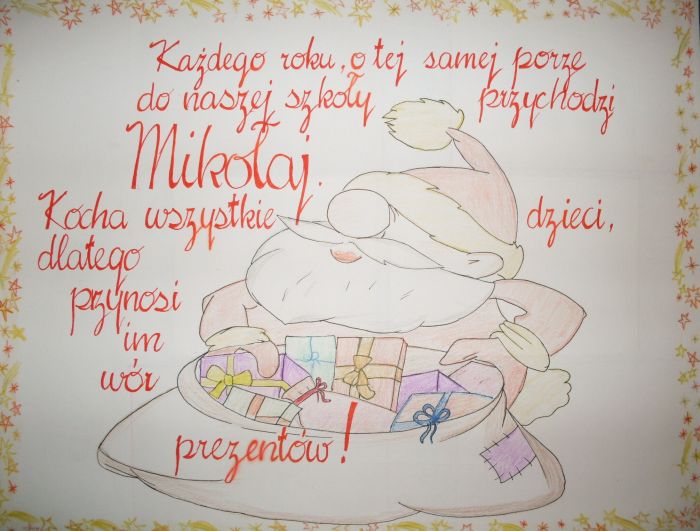 Każdego roku, o tej samej porze
do naszej szkoły przychodzi
Mikołaj.
Kocha wszystkie dzieci,
dlatego
przynosi
im
wór
prezentów!